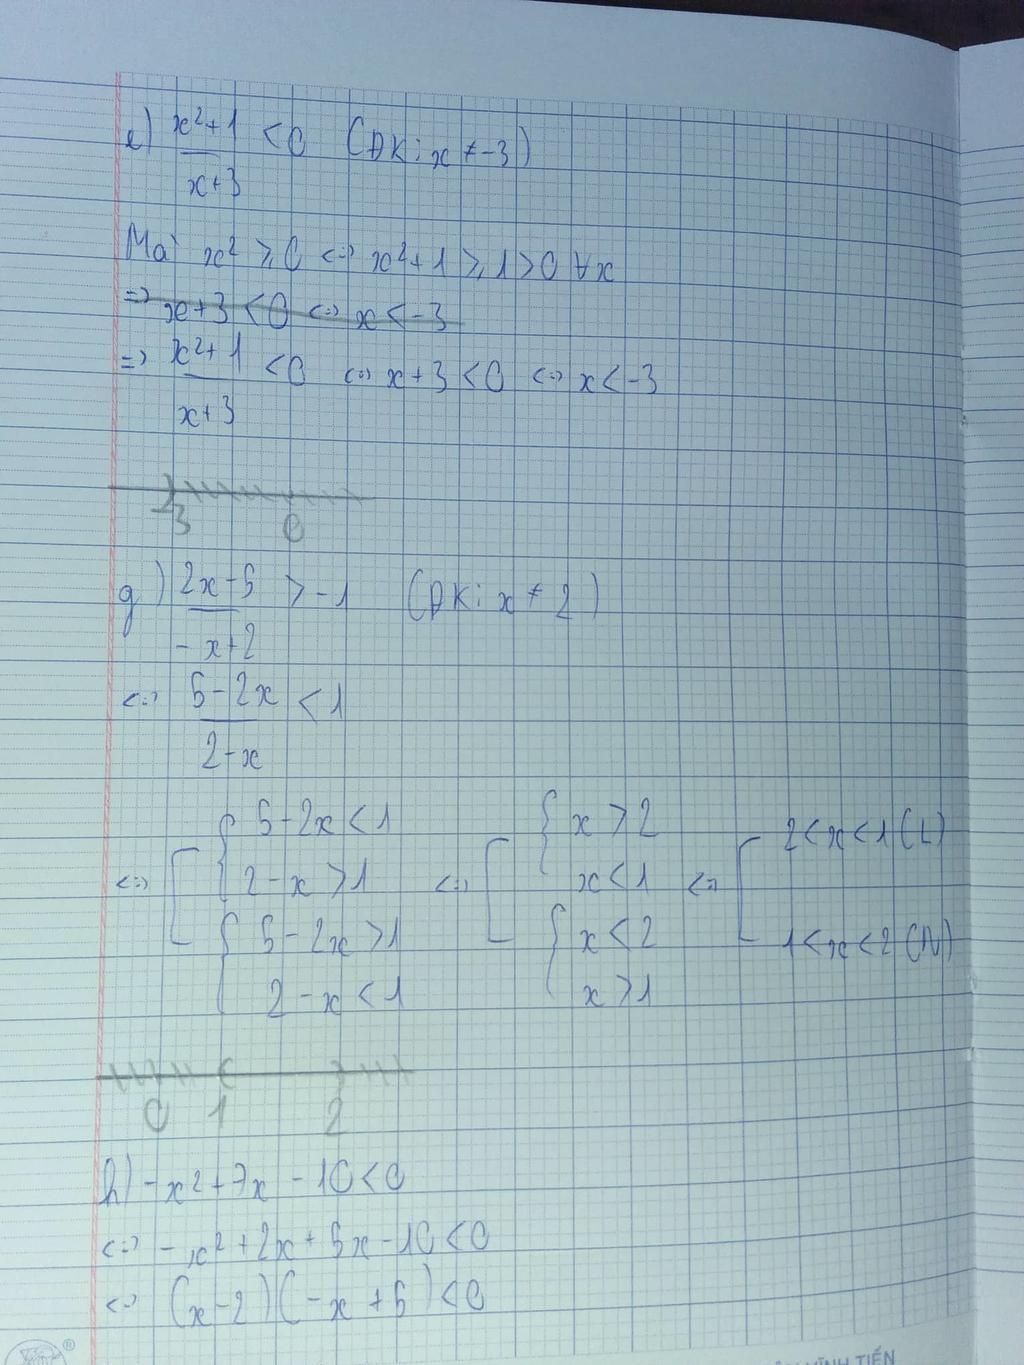 e) x²+1/x+3 < 0 (ĐK: x ≠ -3)
Mà x² ≥ 0 <=> x²+1 ≥ 1 > 0 ∀x
=> x+3 < 0 <=> x < -3
=> x²+1/x+3 < 0 <=> x+3 < 0 <=> x < -3
-3 0
g) 2x-5/-x+2 > -1 (ĐK: x ≠ 2)
<=> 5-2x/2-x < 1
<=> [ { 5-2x < 1 <=> [ { x > 2 <=> [ 2 < x < 1 (L)
2-x > 1 x < 1
{ 5-2x > 1 { x < 2 1 < x < 2 (N)
2-x < 1 x > 1
0 1 2
h) -x²+7x-10 < 0
<=> -x²+2x+5x-10 < 0
<=> (x-2)(-x+5) < 0
®
VĨNH TIẾN